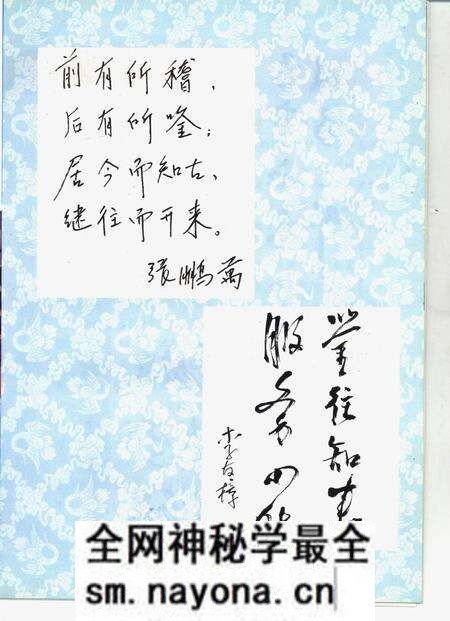 前有所稽，
后有所鉴；
居今而知古、
继往而开来。
張鹏萬
鉴往知来
服务
全网神秘学最全
sm.nayona.cn